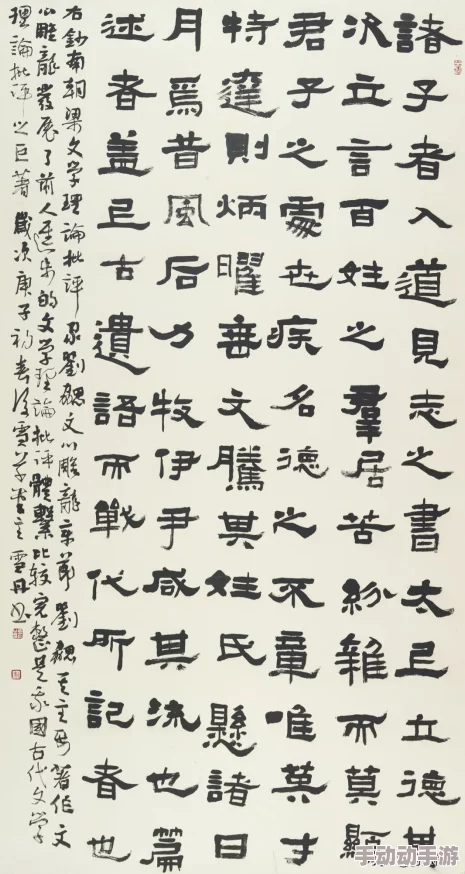 諸子者入道見志之書太上立德其
次立言百姓之羣居苦紛雜而莫顯
君子之處世疾名德之不章唯英才
特達則炳曜垂文騰其姓氏懸諸日
月焉昔風后力牧伊尹咸其流也篇
述者蓋上古遺語而戰代所記者也
右鈔南朝梁文学理論批評家劉勰文心雕龍章節劉勰其主要著作文
心雕龍發展了前人進步的文学理論批評體繫比较完整是我國古代文学
理論批評之巨著歲次庚子初春於雪草堂主雪丹書
手动动手游